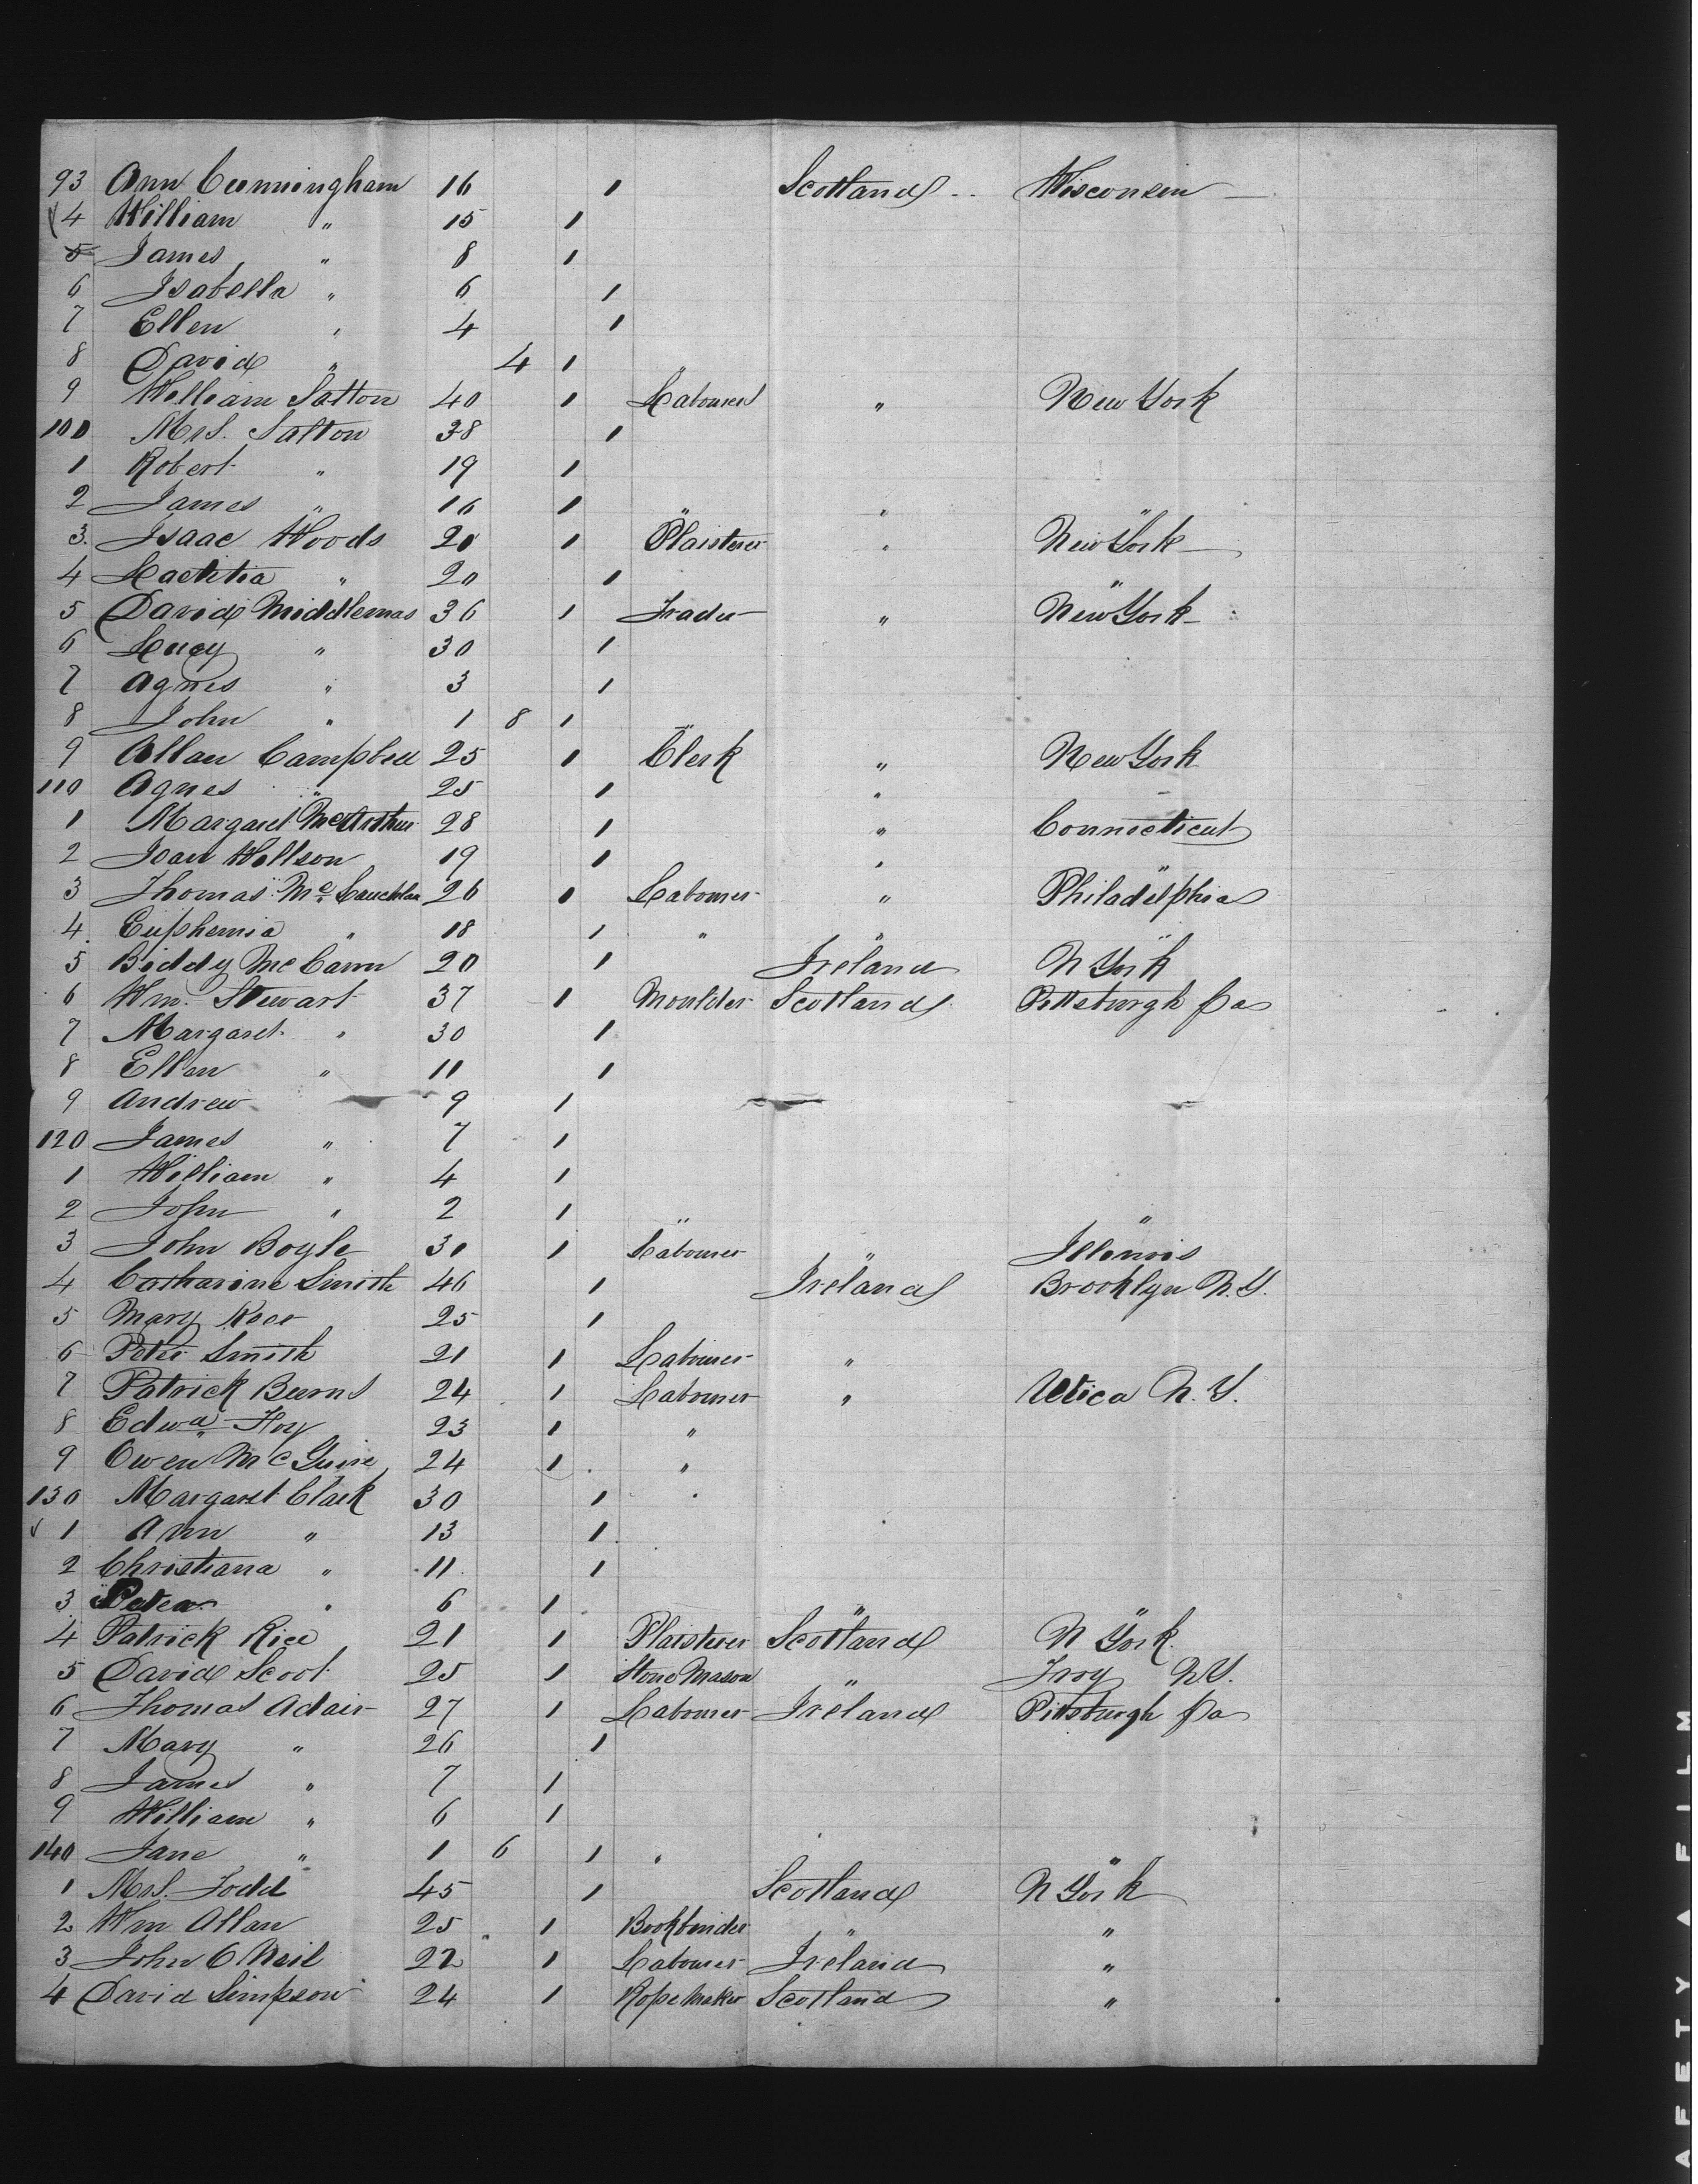 93 Ann Cunningham 16 1 Scotland Wisconsin
4 William " 15 1
5 James " 8 1
6 Isabella " 6 1
7 Ellen " 4 1
8 David " 4 1
9 William Salton 40 1 Labourer " New York
100 Mrs. Salton 38 1
1 Robert " 19 1
2 James " 16 1 " " "
3 Isaac Woods 20 1 Plaisterer " New York
4 Laetitia " 20 1 "
5 David Middlemas 36 1 Trader " New York
6 Lucy " 30 1
7 Agnes " 3 1
8 John " 1 8 1
9 Allan Campbell 25 1 Clerk " New York
110 Agnes " 25 1 "
1 Margaret McArthur 28 1 " Connecticut
2 Jean Willson 19 1 "
3 Thomas Mc Lauchlan 26 1 Labourer " Philadelphia
4 Euphemia " 18 1 " " "
5 Biddy McCann 20 1 Ireland N York
6 Wm. Stewart 37 1 Moulder Scotland Pittsburgh Pa
7 Margaret " 30 1
8 Ellen " 11 1
9 Andrew 9 1
120 James " 7 1
1 William " 4 1
2 John " 2 1 "
3 John Boyle 30 1 Labourer " Illinois
4 Catharine Smith 46 1 Ireland Brooklyn N.Y.
5 Mary 25 1
6 Peter Smith 21 1 Labourer "
7 Patrick Burns 24 1 Labourer " Utica N.Y.
8 Edwd Hoy 23 1 "
9 Owen McGuire 24 1 "
130 Margaret Clark 30 1 "
1 Ann " 13 1
2 Christiana " 11 1
3 Peter " 6 1 " "
4 Patrick Rice 21 1 Plaisterer Scotland N York
5 David Scoot 25 1 Stone Mason " Troy NY.
6 Thomas Adair 27 1 Labourer Ireland Pittsburgh Pa
7 Mary " 26 1
8 James " 7 1
9 William " 6 1
140 Jane " 1 6 1 " "
1 Mrs. Todd 45 1 Scotland N York
2 Wm Allan 25 1 Bookbinder " "
3 John O Neil 22 1 Labourer Ireland "
4 David Simpson 24 1 Rope Maker Scotland "
AFETY FILM